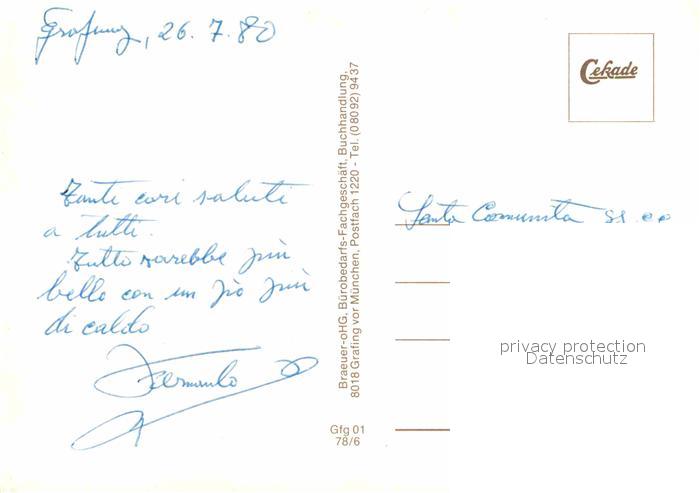 Grafing, 26.7.80
Tanti cari saluti
a tutti.
Tutto sarebbe più
bello con un pò più
di caldo
Fernando
Braeuer-oHG, Bürobedarfs-Fachgeschäft, Buchhandlung,
8018 Grafing vor München, Postfach 1220 - Tel. (08092) 9437
Gfg 01
78/6
Cekade
Santa Comunità SS. CC
privacy protection
Datenschutz